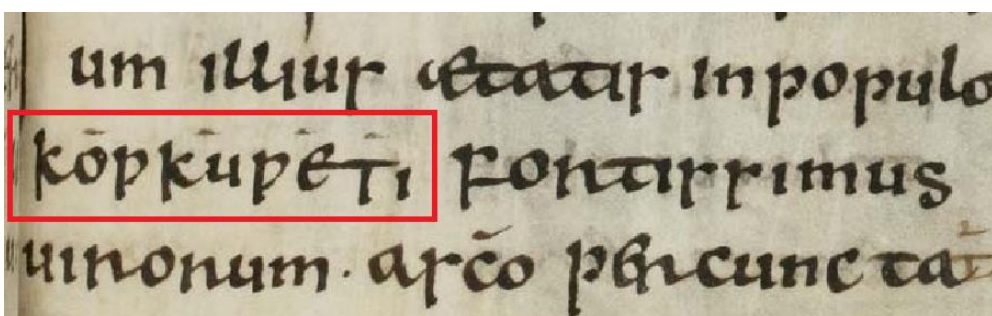 um illius aetatis in populo
kōrkūrētī fortissimus
uirorum · a sc̄o percuncta